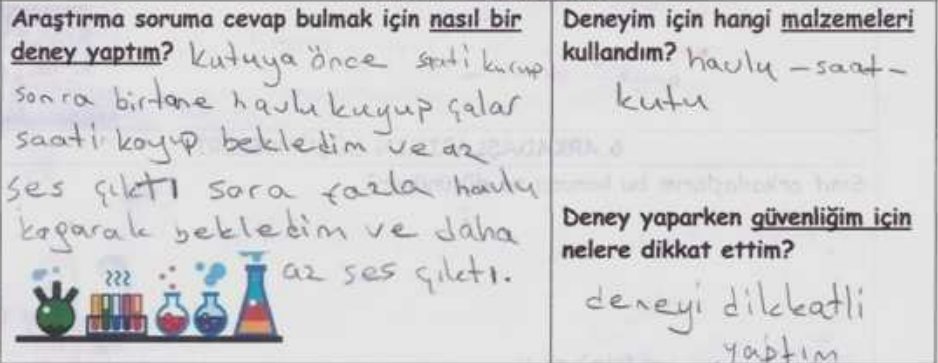 Araştırma soruma cevap bulmak için nasıl bir
deney yaptım? kutuya önce saati kurup
sonra birtane havlu kuyup çalar
saati koyup bekledim ve az
ses çıktı sora fazla havlu
kogarak bekledim ve daha
az ses çıktı.
Deneyim için hangi malzemeleri
kullandım? havlu - saat -
kutu
Deney yaparken güvenliğim için
nelere dikkat ettim?
deneyi dikkatli
yaptım